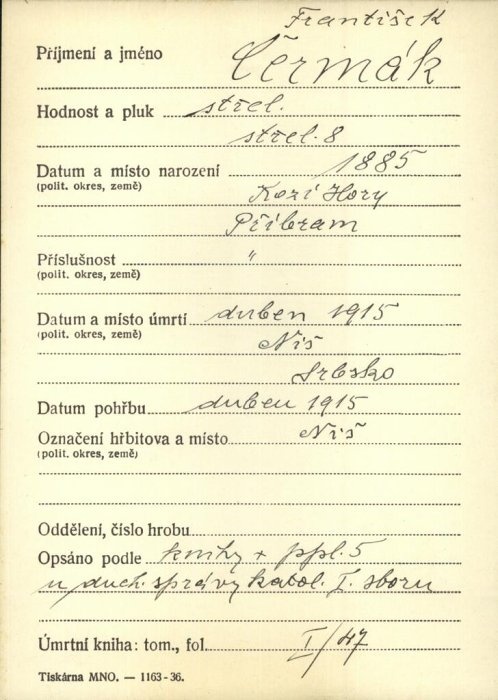 František
Příjmení a jméno Čermák
Hodnost a pluk střel.
střel. 8
Datum a místo narození 1885
(polit. okres, země) Kozí Hory
Příbram
Příslušnost "
(polit. okres, země)
Datum a místo úmrtí duben 1915
(polit. okres, země) Niš
Srbsko
Datum pohřbu duben 1915
Označení hřbitova a místo Niš
(polit. okres, země)
Oddělení, číslo hrobu
Opsáno podle knihy + ppl. 5
u duch. správy katol. I. sboru
Úmrtní kniha: tom., fol. I/47
Tiskárna MNO. — 1163-36.